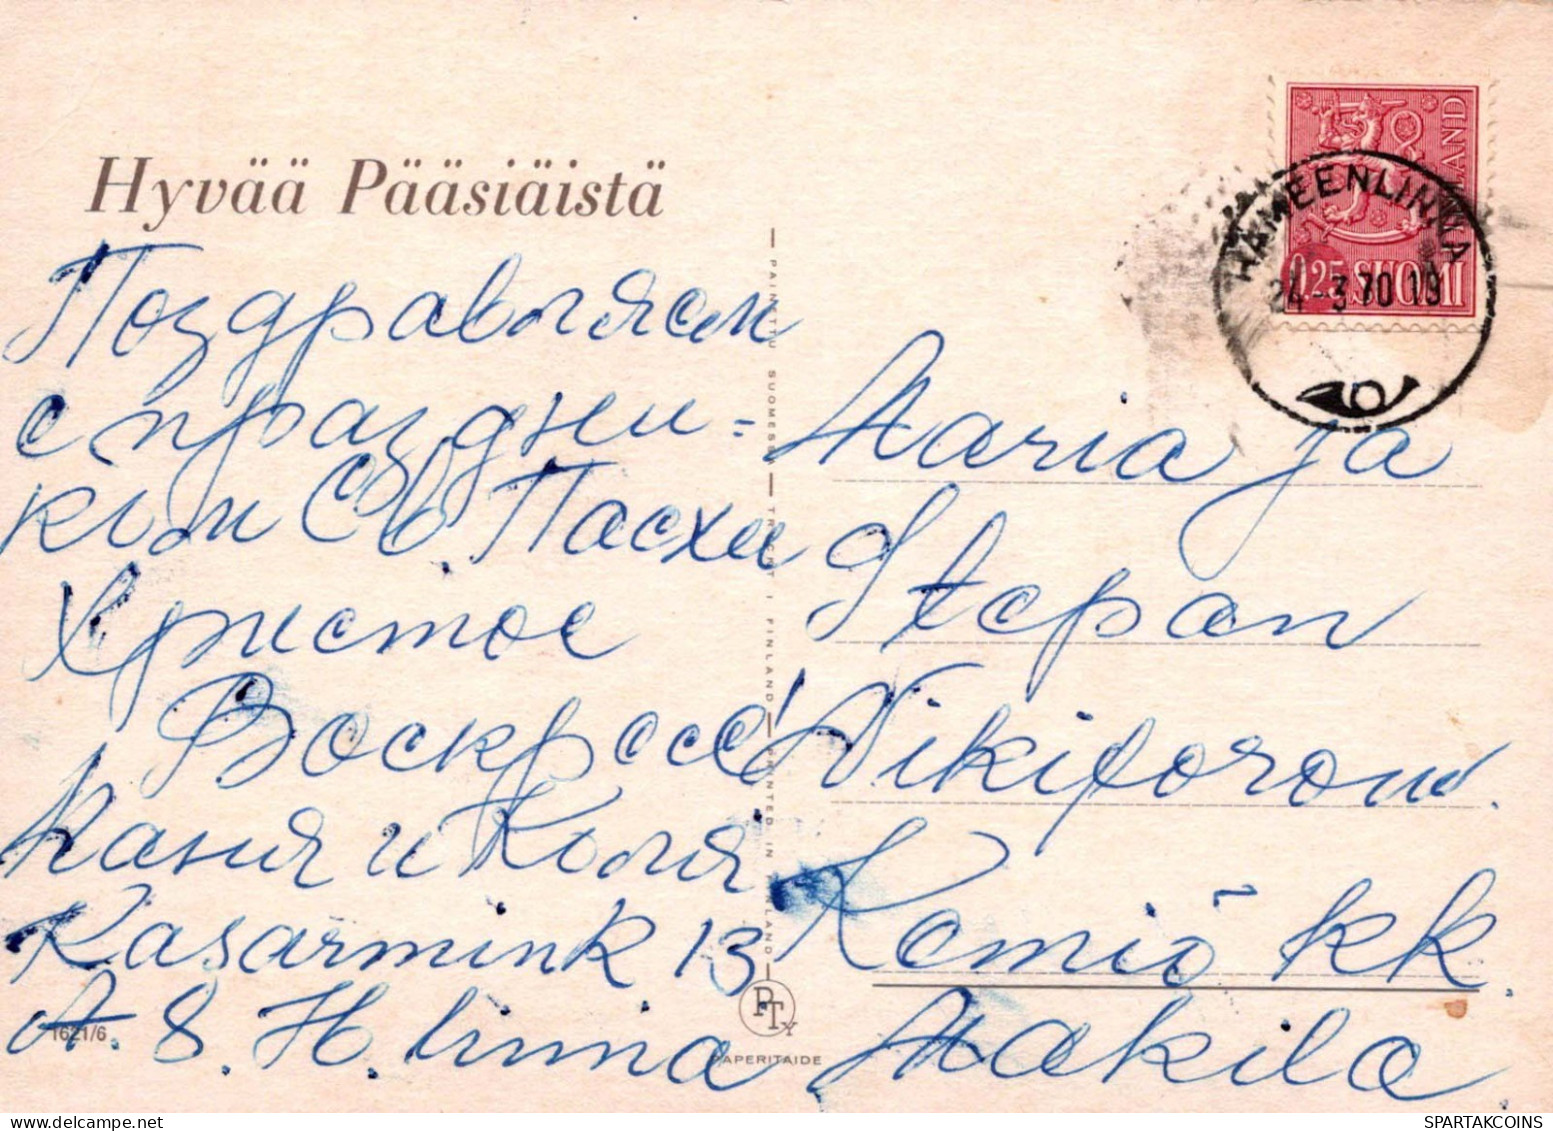 Hyvää Pääsiäistä
Поздравляем
с праздни=
ком Св. Пасхи
Христос
Воскресе!
Маня и Коля
Kasarmink 13
A. 8. H. linna
Maria ja
Stepan
Nikiforow.
Kemiö kk.
Makila
SUOMI FINLAND
0,25
HÄMEENLINNA
24-3 70 19
PAINETTU SUOMESSA — TRYCKT I FINLAND — PRINTED IN FINLAND
PTY
PAPERITAIDE
1621/6
SPARTAKCOINS